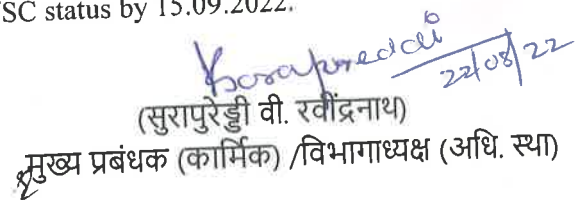 SC status by 15.09.2022.
22/08/22
(सुरापुरेड्डी वी. रवींद्रनाथ)
मुख्य प्रबंधक (कार्मिक) /विभागाध्यक्ष (अधि. स्था)